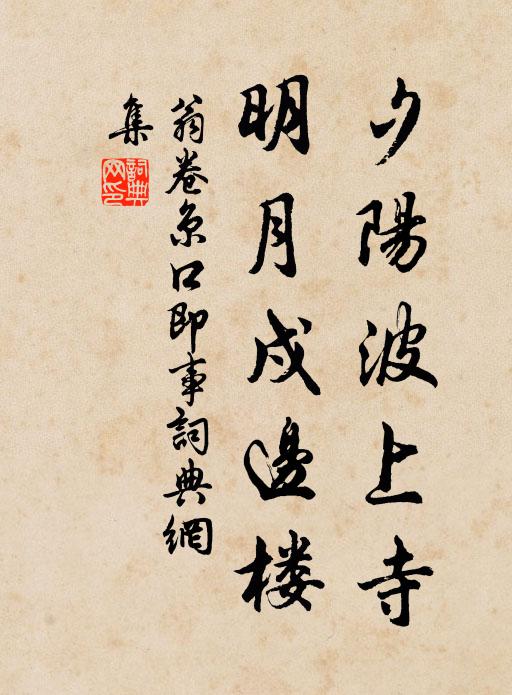 夕陽波上寺
明月戍邊楼
翁卷京口即事詞典網
集
詞典網印